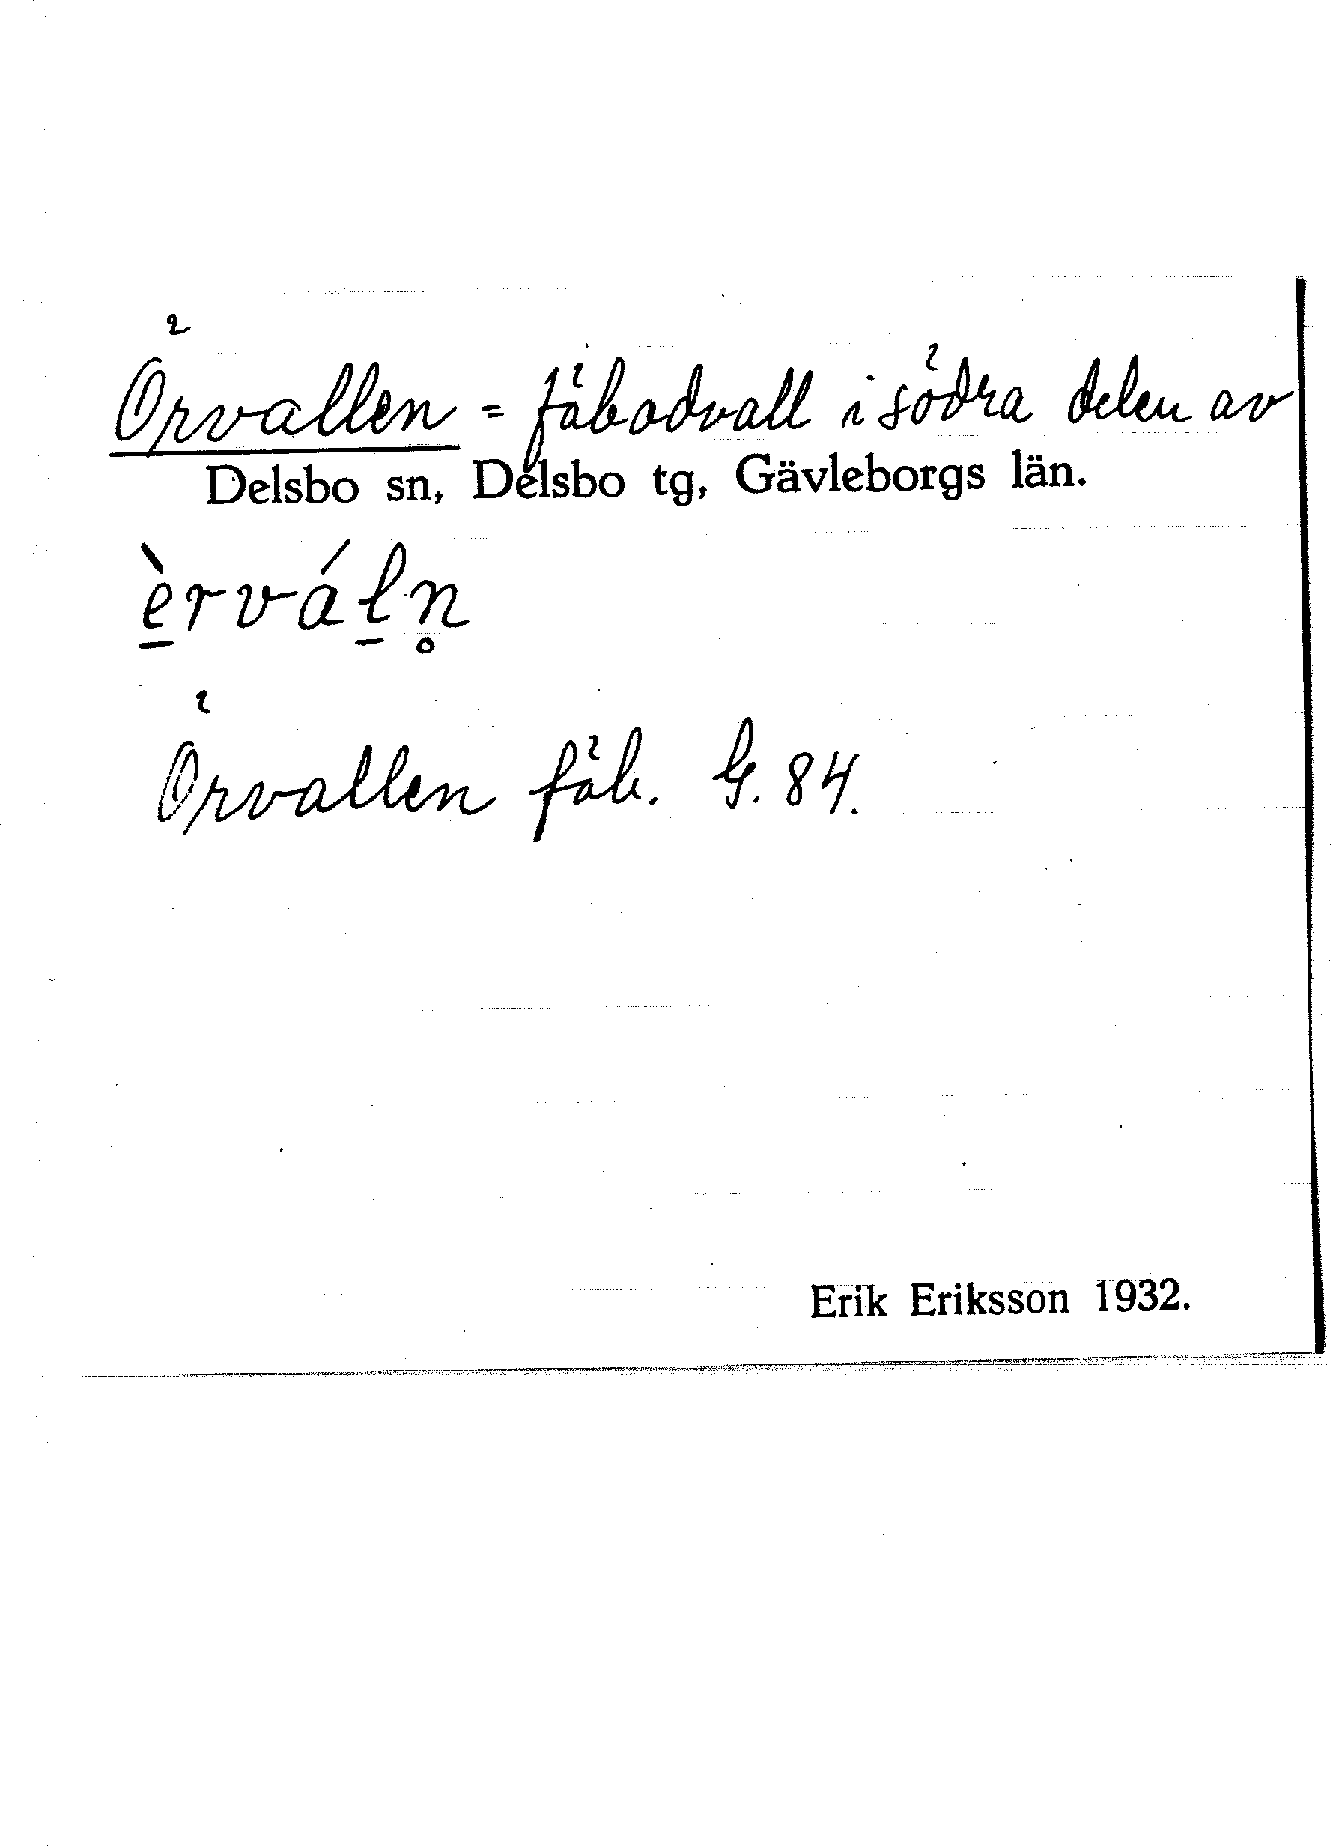 Örvallen = fäbodvall i södra delen av
Delsbo sn, Delsbo tg, Gävleborgs län.
è̱rváḻn̥
Örvallen fäb. G. 84.
Erik Eriksson 1932.